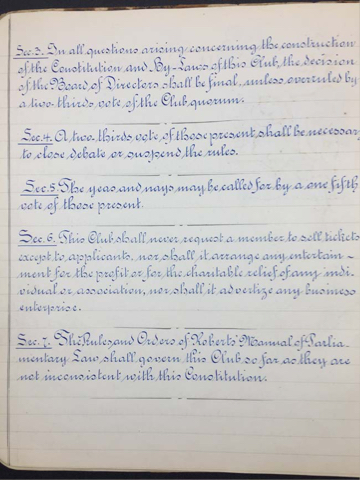 Sec. 3. In all questions arising concerning the construction
of the Constitution and By-Laws of this Club, the decision
of the Board of Directors shall be final, unless overruled by
a two-thirds vote of the Club quorum.
Sec. 4. A two-thirds vote of those present shall be necessary
to close debate or suspend the rules.
Sec. 5. The yeas and nays may be called for by a one fifth
vote of those present.
Sec. 6. This Club shall never request a member to sell tickets
except to applicants, nor shall it arrange any entertain-
ment for the profit or for the charitable relief of any indi-
vidual or association, nor shall it advertize any business
enterprise.
Sec. 7. The Rules and Orders of Roberts' Manual of Parlia-
mentary Law, shall govern this Club so far as they are
not inconsistent with this Constitution.